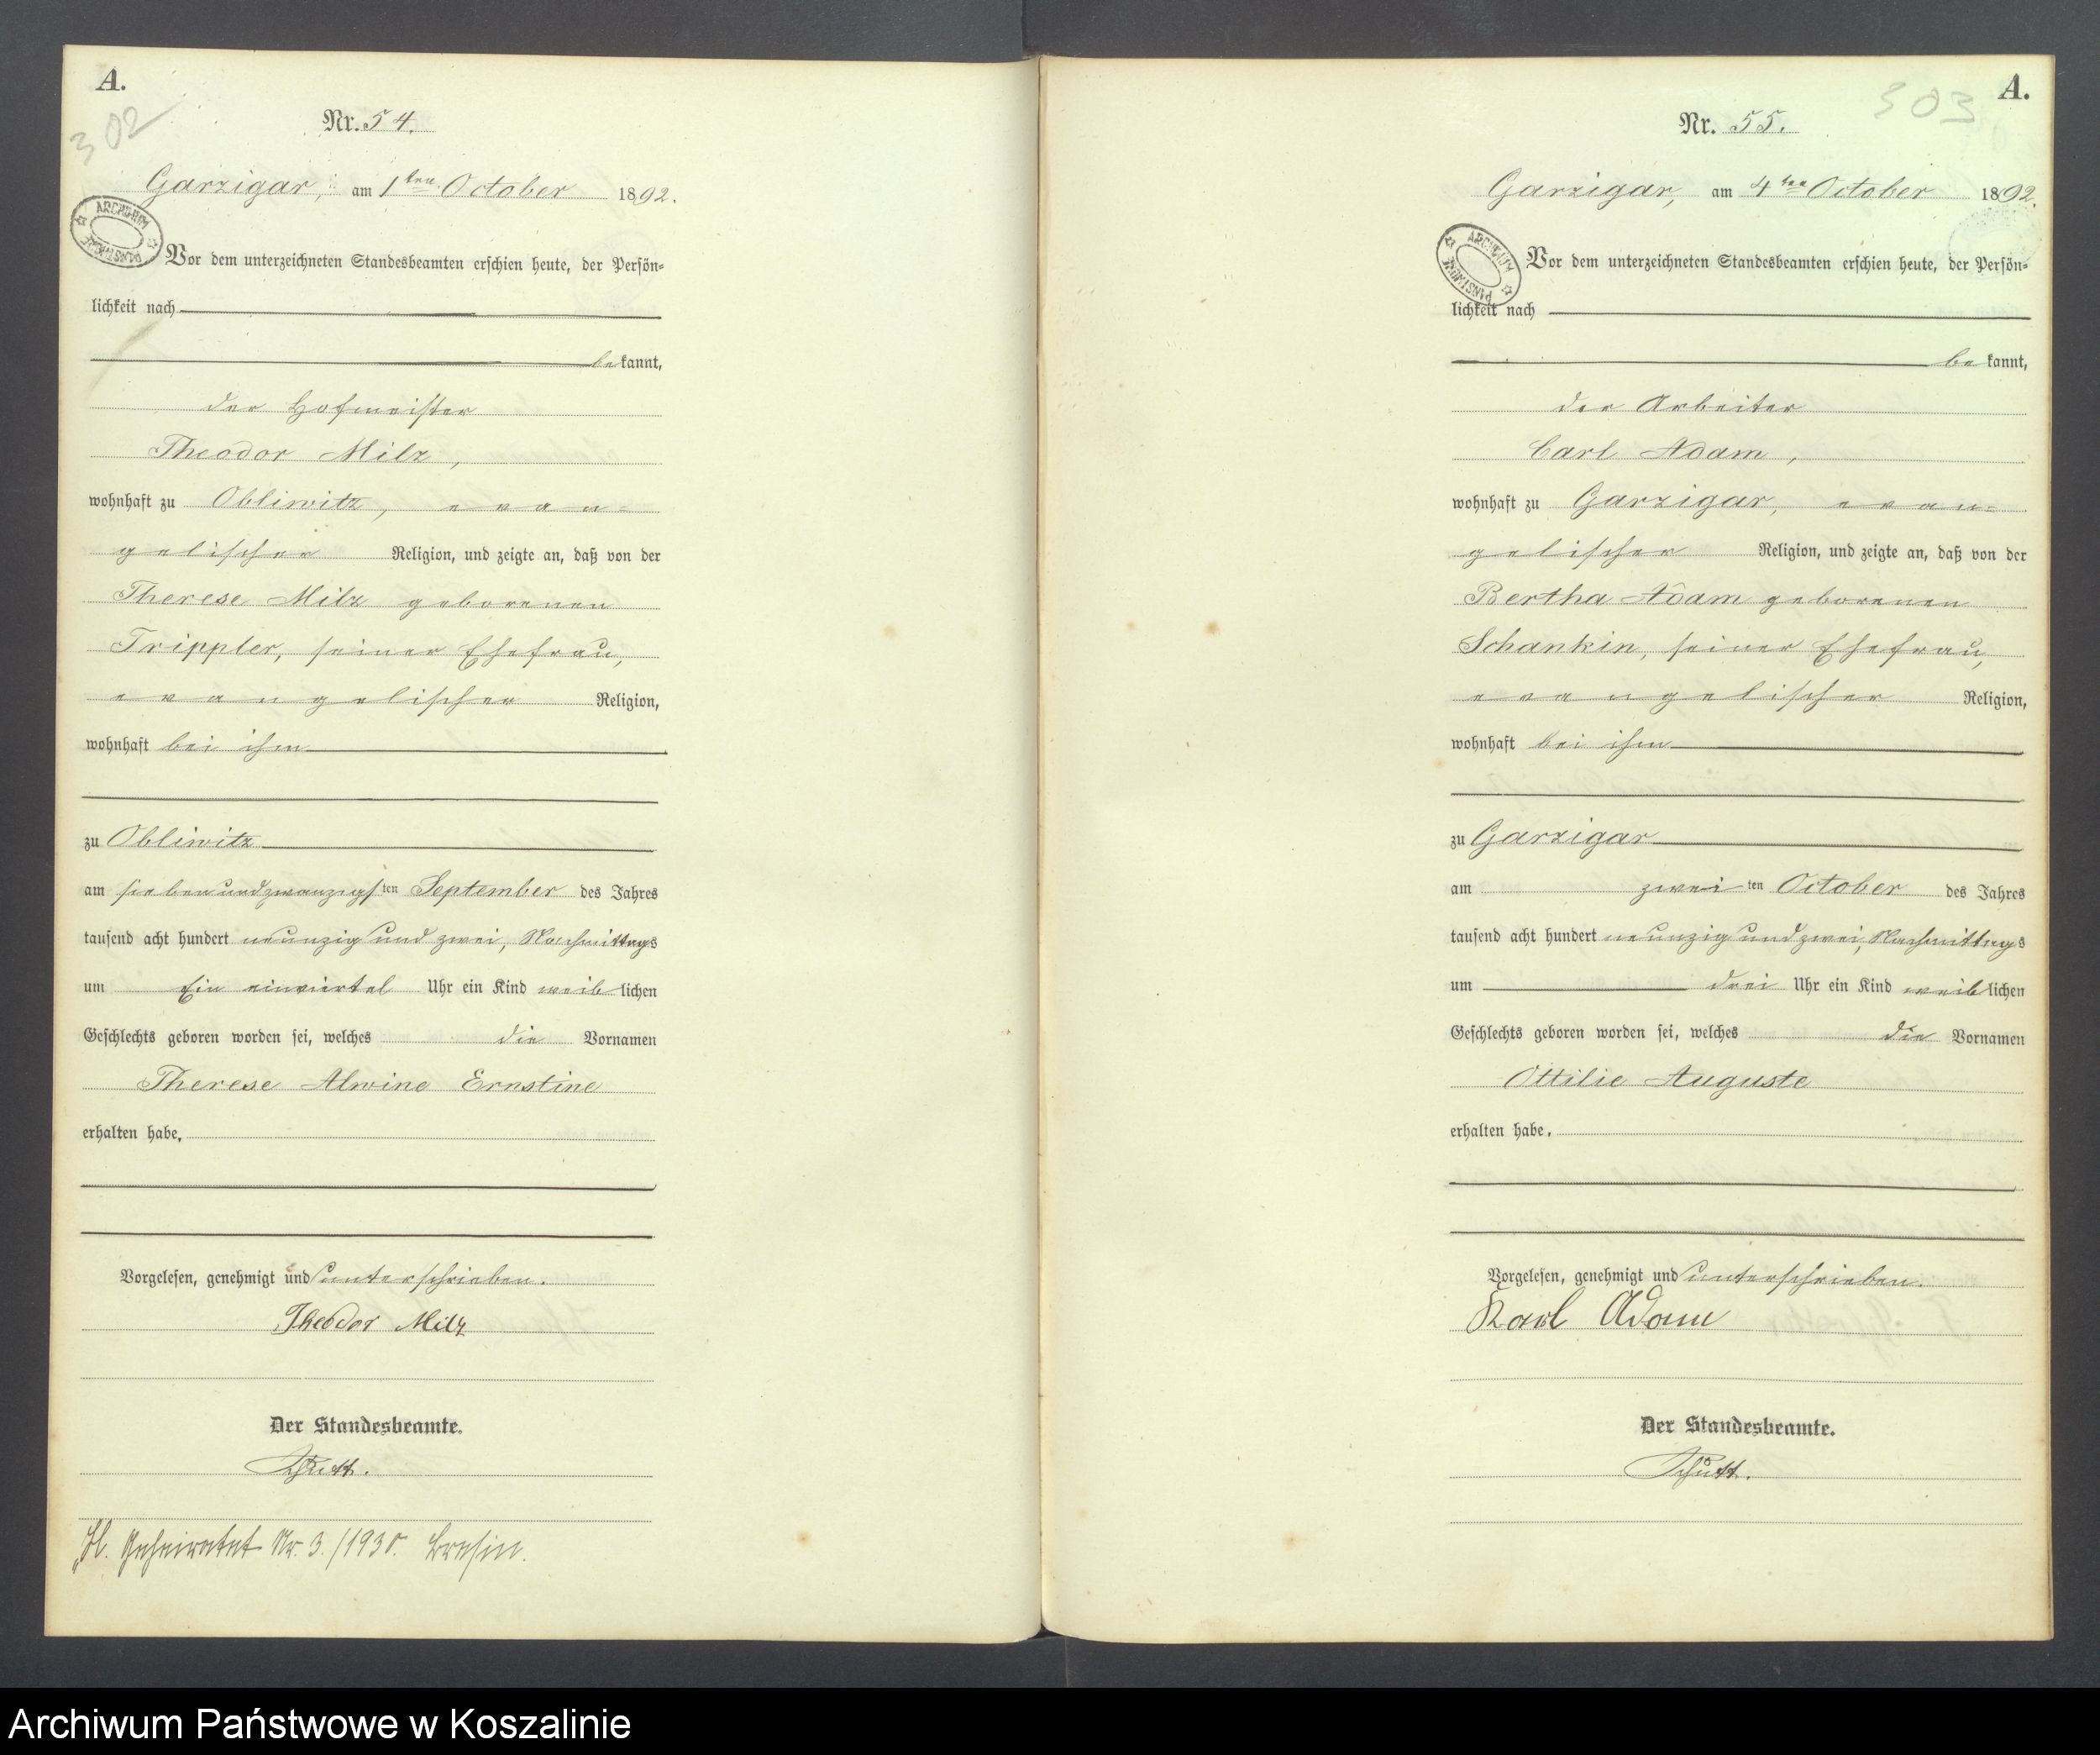 A.
302
Nr. 54.
Garzigar, am 1ten October 1892.
ARCHIWUM PAŃSTWOWE
Vor dem unterzeichneten Standesbeamten erschien heute, der Persön=
lichkeit nach
bekannt,
der Hofmeister
Theodor Milz,
wohnhaft zu Obliwitz, evan=
gelischer Religion, und zeigte an, daß von der
Therese Milz geborenen
Trippler, seiner Ehefrau,
evangelischer Religion,
wohnhaft bei ihm
zu Obliwitz
am siebenundzwanzigsten September des Jahres
tausend acht hundert neunzig und zwei, Nachmittags
um Ein einviertel Uhr ein Kind weiblichen
Geschlechts geboren worden sei, welches die Vornamen
Therese Alwine Ernstine
erhalten habe.
Vorgelesen, genehmigt und unterschrieben.
Theodor Milz
Der Standesbeamte.
Schütt.
Geheiratet Nr. 3./1930. Bresin.
A.
303
Nr. 55.
Garzigar, am 4ten October 1892.
ARCHIWUM PAŃSTWOWE
Vor dem unterzeichneten Standesbeamten erschien heute, der Persön=
lichkeit nach
bekannt,
der Arbeiter
Carl Adam,
wohnhaft zu Garzigar, evan=
gelischer Religion, und zeigte an, daß von der
Bertha Adam geborenen
Schankin, seiner Ehefrau,
evangelischer Religion,
wohnhaft bei ihm
zu Garzigar
am zweiten October des Jahres
tausend acht hundert neunzig und zwei, Nachmittags
um drei Uhr ein Kind weiblichen
Geschlechts geboren worden sei, welches die Vornamen
Ottilie Auguste
erhalten habe.
Vorgelesen, genehmigt und unterschrieben.
Karl Adam
Der Standesbeamte.
Schütt.
Archiwum Państwowe w Koszalinie